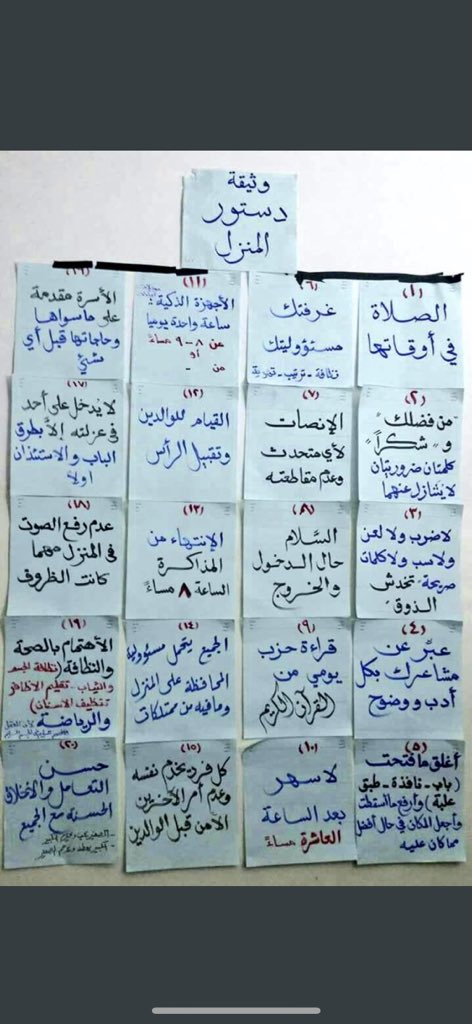 وثيقة
دستور
المنزل
(١)
الصلاة
في أوقاتها
(٢)
"من فضلك"
و"شكراً"
كلمتان ضروريتان
لا يتنازل عنهما
(٣)
لا ضرب ولا لعن
ولا سب ولا كلمات
صريحة تخدش
الذوق
(٤)
عبّر عن
مشاعرك بكل
أدب ووضوح
(٥)
أغلق ما فتحت
(باب - نافذة - طبق
علبة) وأرفع ما أسقطت
وأجعل المكان في حال أفضل
مما كان عليه
(٦)
غرفتك
مسؤوليتك
نظافة - ترتيب - تهوية
(٧)
الإنصات
لأي متحدث
وعدم مقاطعته
(٨)
السَّلام
حال الدخول
والخروج
(٩)
قراءة حزب
يومي من
القرآن الكريم
(١٠)
لا سهر
بعد الساعة
العاشرة مساءً
(١١)
الأجهزة الذكية:
ساعة واحدة يوميا
من ٨ - ٩ مساءً
أو
من -
(١٢)
القيام للوالدين
وتقبيل الرأس
(١٣)
الإنتهاء من
المذاكرة
الساعة ٨ مساءً
(١٤)
الجميع يتحمل مسئولية
المحافظة على المنزل
وما فيه من ممتلكات
(١٥)
كل فرد يخدم نفسه
وعدم أمر الآخرين
الأمن قبل الوالدين
(١٦)
الأسرة مقدمة
على ما سواها
وحاجاتها قبل أي
شئ
(١٧)
لا يدخل على أحد
في عزلته إلا بطرق
الباب والاستئذان
اولا
(١٨)
عدم رفع الصوت
في المنزل مهما
كانت الظروف
(١٩)
الأهتمام بالصحة
والنظافة (نظافة الجسم
والثياب - تقليم الاظافر
تنظيف الاسنان)
والرياضة
(٢٠)
حسن
التعامل والأخلاق
الحسنة مع الجميع